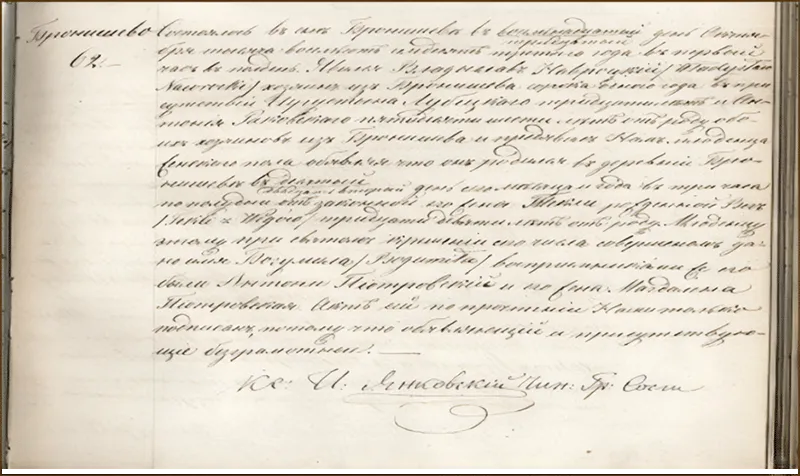 Бронишево
62.
Состоялось въ селѣ Бронишевѣ въ восьмнадцатый день Октя-
тридцатый
бря тысяча восемьсотъ семьдесятъ третьяго года въ первомъ
часѣ въ полдень. Явился Владыславъ Навроцкій /Władysław
Nawrocki/ хозяинъ изъ Бронишева сорока одного года въ при-
сутствіи Лубецкаго тридцати лѣтъ и Ан-
тонія Раковскаго пятидесяти шести лѣтъ отъ роду обо-
ихъ хозяиновъ изъ Бронишева и предъявилъ Намъ младенца
женскаго пола объявляя что онъ родился въ деревнѣ Бро-
нишевѣ въ девятый
двадцать вторый день сего мѣсяца и года въ три часа
по полудни отъ законной его жены Текли рожденной
тридцати девяти лѣтъ отъ роду. Младенцу
этому при святомъ крещеніи сего числа совершенномъ да-
но имя Богумила воспріемниками его
были Антони Піотровскій и его жена Магдалина
Піотровская. Актъ сей по прочтеніи Нами только
подписанъ, потому что объявляющій и присутствую-
щіе безграмотные.
Кс: И: Янковскій Чин: Гр: Сост